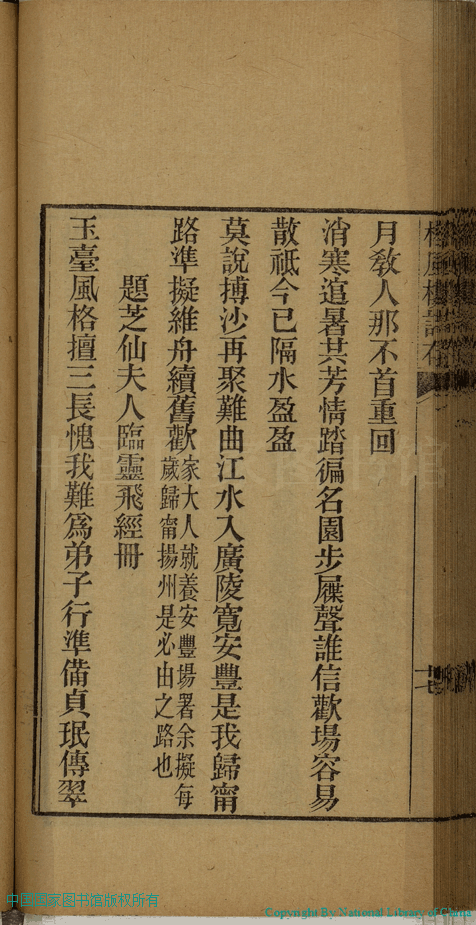 月敎人那不首重回
消寒逭暑共芳情踏徧名園步屧聲誰信歡場容易
散祗今已隔水盈盈
莫說摶沙再聚難曲江水入廣陵寬安豐是我歸甯
路準擬維舟續舊歡家大人就養安豐場署余擬每
歲歸甯揚州是必由之路也
題芝仙夫人臨靈飛經冊
玉臺風格擅三長愧我難爲弟子行準備貞珉傳翠
中国国家图书馆版权所有
Copyright By National Library of China